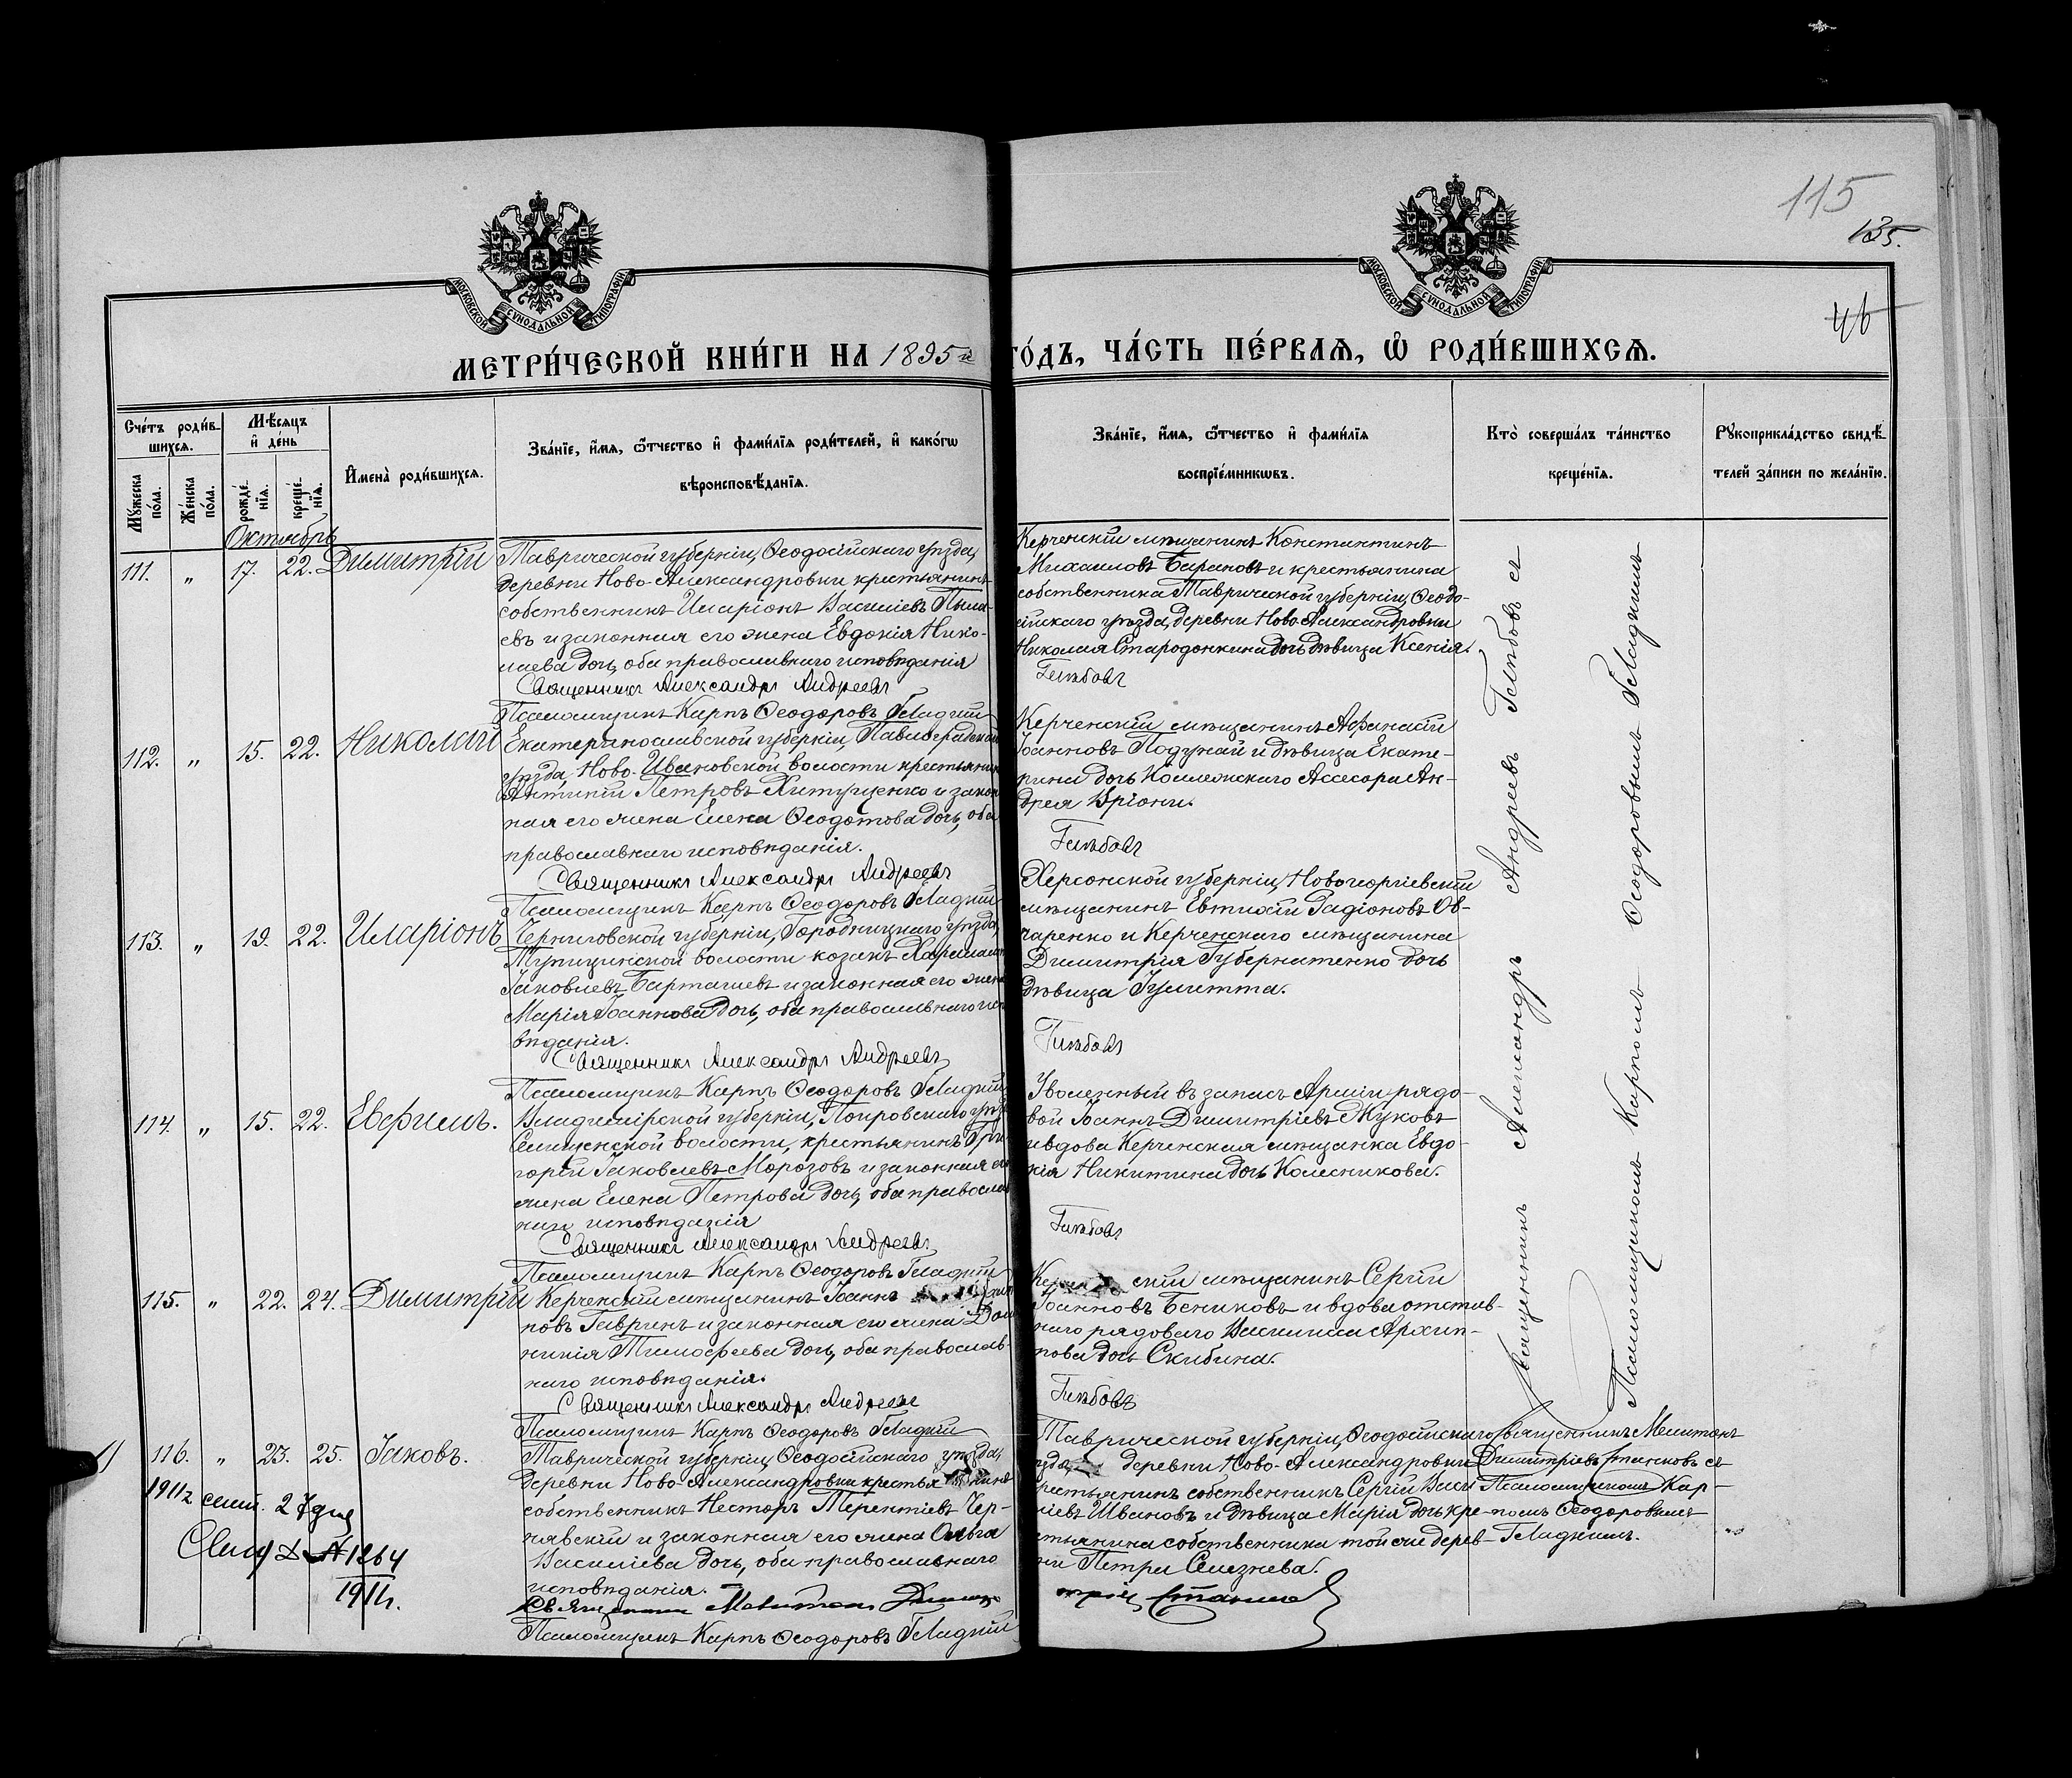 115
135.
46
МОСКОВСКОЙ СУНОДАЛЬНОЙ ТИПОГРАФІИ
МОСКОВСКОЙ СУНОДАЛЬНОЙ ТИПОГРАФІИ
МЕТРИ́ЧЕСКОЙ КНИ́ГИ НА 1895й ГО́ДЪ, ЧА́СТЬ ПЕ́РВАѦ, Ѡ РОДИ́ВШИХСѦ.
Сче́тъ роди́в-
шихсѧ.
Мꙋ́жеска по́ла.
Же́нска по́ла.
Мѣ́сѧцъ
и҆ де́нь
рожде́нїѧ.
креще́нїѧ.
И҆мена̀ роди́вшихсѧ.
Зва́нїе, и҆́мѧ, ѻ҆́тчество и҆ фами́лїѧ роди́телей, и҆ како́гѡ
вѣроисповѣ́данїѧ.
Зва́нїе, и҆́мѧ, ѻ҆́тчество и҆ фами́лїѧ
воспрїе́мникѡвъ.
Кто̀ соверша́лъ та́инство
креще́нїѧ.
Рꙋкоприкла́дство свидѣ́-
телей за́писи по жела́нїю.
Октябрь
111. " 17. 22. Димитрій
Таврической губерніи, Ѳеодосійскаго уѣзда,
деревни Ново-Александровки крестьянинъ
собственникъ Иларіонъ Василіевъ
евъ и законная его жена Евдокія Нико-
лаева дочь, оба православнаго исповѣданія
Священникъ Александръ Андреевъ
Псаломщикъ Карпъ Ѳеодоровъ Гладкій
Керченскій мѣщанинъ Константинъ
Михаиловъ Барановъ и крестьянина
собственника Таврической губерніи, Ѳеодо-
сійскаго уѣзда, деревни Ново-Александровки
Николая Стародонкина дочь дѣвица Ксенія.
Глѣбовъ
112. " 15. 22. Николай
Екатеринославской губерніи, Павлоградскаго
уѣзда, Ново-Ивановской волости крестьянинъ
Петровъ Хитущенко и закон
ная его жена Елена Ѳеодотова дочь, оба
православнаго исповѣданія.
Священникъ Александръ Андреевъ
Псаломщикъ Карпъ Ѳеодоровъ Гладкій
Керченскій мѣщанинъ Аѳанасій
Іоанновъ Подунай и дѣвица Екате-
рина дочь Коллежскаго Ассесора Ан-
дрея Вріони.
Глѣбовъ
113. " 19. 22. Иларіонъ
Черниговской губерніи, Городницкаго уѣзда,
Тупичинской волости козакъ
Іаковлевъ Барташевъ и законная его жена
Марія Іоаннова дочь, оба православнаго испо
вѣданія.
Священникъ Александръ Андреевъ
Псаломщикъ Карпъ Ѳеодоровъ Гладкій
Херсонской губерніи, Новогеоргіевскій
мѣщанинъ Евтихій Радіоновъ Ов-
чаренко и Керченскаго мѣщанина
Димитрія Губернатенко дочь
дѣвица Іулитта.
Глѣбовъ
114. " 15. 22. Евѳимъ.
Владимірской губерніи, Покровскаго уѣзда
Селищенской волости, крестьянинъ Гри-
горій Іаковлевъ Морозовъ и законная его
жена Елена Петрова дочь, оба православ
наго исповѣданія
Священникъ Александръ Андреевъ
Псаломщикъ Карпъ Ѳеодоровъ Гладкій
Уволенный въ запасъ Арміи рядо-
вой Іоаннъ Димитріевъ Жуковъ
и вдова Керченская мѣщанка Евдо-
кія Никитина дочь Колесникова.
Глѣбовъ
115. " 22. 24. Димитрій
Керченскій мѣщанинъ Іоаннъ
повъ Гавринъ и законная его жена Дом
никія Тимоѳеева дочь, оба православ-
наго исповѣданія.
Священникъ Александръ Андреевъ
Псаломщикъ Карпъ Ѳеодоровъ Гладкій
скій мѣщанинъ Сергій
Іоанновъ Бениковъ и вдова отстав-
наго рядоваго Василиса Архип-
пова дочь Скибина.
Глѣбовъ
Священникъ Александръ Андреевъ Глѣбовъ съ
Псаломщикомъ Карпомъ Ѳеодоровымъ Гладкимъ
1) 116. " 23. 25. Іаковъ.
1911г. 27 дня
№ 1264
1911г.
Таврической губерніи, Ѳеодосійскаго уѣзда,
деревни Ново-Александровки крестьянинъ
собственникъ Несторъ Терентіевъ Чер-
нявскій и законная его жена Ольга
Василіева дочь, оба православнаго
исповѣданія.
Священникъ Мелитонъ Димит
рій Станковъ
Псаломщикъ Карпъ Ѳеодоровъ Гладкій
Таврической губерніи, Ѳеодосійскаго
уѣзда, деревни Ново-Александровки
крестьянинъ собственникъ Сергій Васи
ліевъ Ивановъ и дѣвица Марія дочь кре-
стьянина собственника той же дерев-
ни Петра Селезнева.
Священникъ Мелитонъ
Димитріевъ Станковъ съ
Псаломщикомъ Кар-
помъ Ѳеодоровымъ
Гладкимъ.